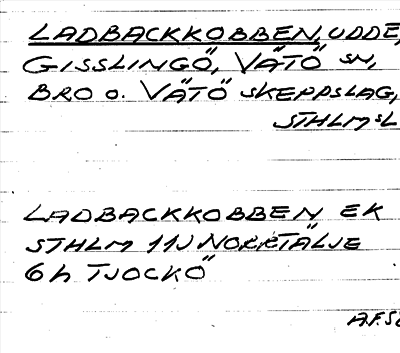 LADBACKKOBBEN, UDDE,
GISSLINGÖ, VÄTÖ SN,
BRO O. VÄTÖ SKEPPSLAG,
STHLM SL
LADBACKKOBBEN EK
STHLM 11J NORRTÄLJE
6h TJOCKÖ
A.F.SE